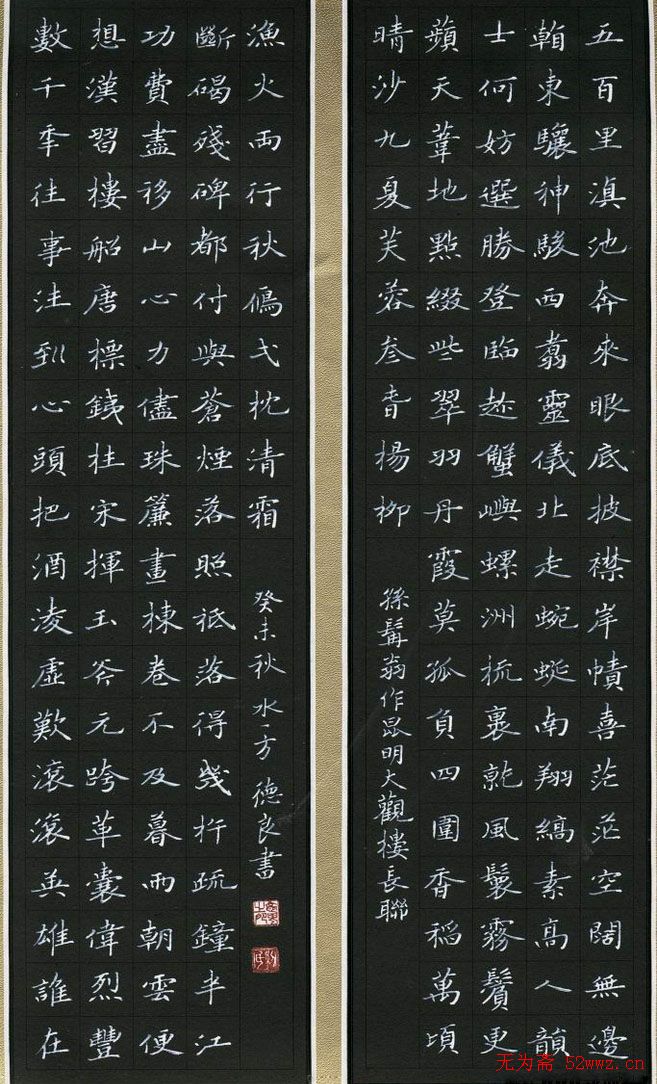 五百里滇池奔來眼底披襟岸幘喜茫茫空闊無邊
看東驤神駿西翥靈儀北走蜿蜒南翔縞素高人韻
士何妨選勝登臨趁蟹嶼螺洲梳裹就風鬟霧鬢更
蘋天葦地點綴些翠羽丹霞莫孤負四圍香稻萬頃
晴沙九夏芙蓉叁春楊柳
孫髯翁作昆明大觀樓長聯
數千秊往事注到心頭把酒淩虛歎滾滾英雄誰在
想漢習樓船唐標銕柱宋揮玉斧元跨革囊偉烈豐
功費盡移山心力儘珠簾畫棟卷不及暮雨朝雲便
斷碣殘碑都付與蒼煙落照衹落得幾杵疏鐘半江
漁火兩行秋鴈弌枕清霜
癸未秋水一方德良書
无为斋 52wwz.cn